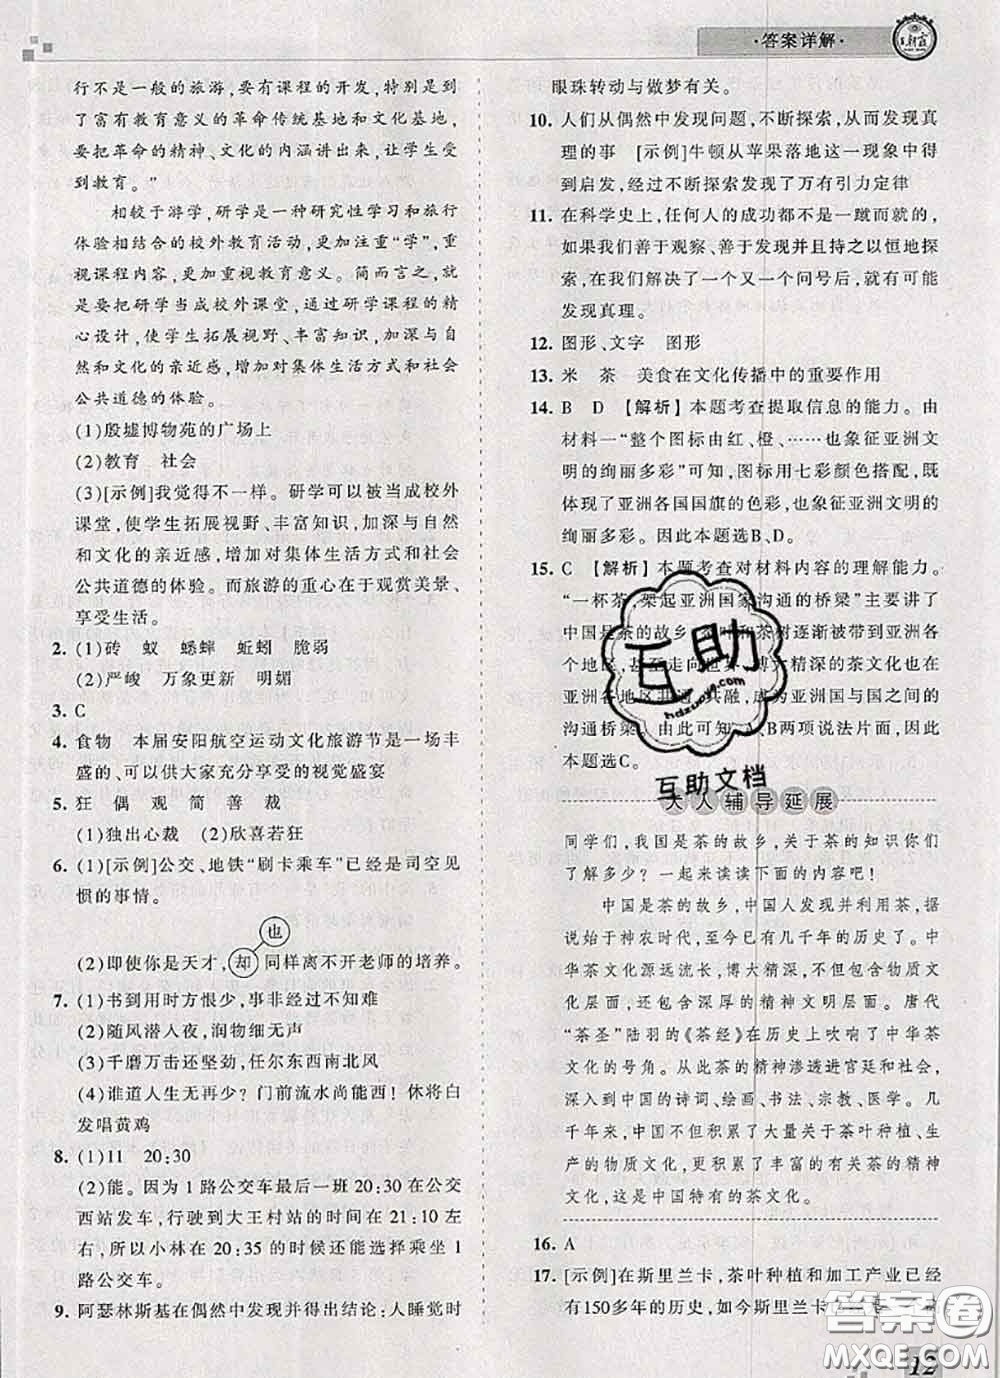 ·答案详解·
行不是一般的旅游，要有课程的开发，特别是到
了富有教育意义的革命传统基地和文化基地，
要把革命的精神、文化的内涵讲出来，让学生受
到教育。”
相较于游学，研学是一种研究性学习和旅行
体验相结合的校外教育活动，更加注重“学”，重
视课程内容，更加重视教育意义。简而言之，就
是要把研学当成校外课堂，通过研学课程的精
心设计，使学生拓展视野、丰富知识，加深与自
然和文化的亲近感，增加对集体生活方式和社会
公共道德的体验。
(1)殷墟博物苑的广场上
(2)教育　社会
(3)[示例]我觉得不一样。研学可以被当成校外
课堂，使学生拓展视野、丰富知识，加深与自然
和文化的亲近感，增加对集体生活方式和社会
公共道德的体验。而旅游的重心在于观赏美景、
享受生活。
2. (1)砖　蚁　蟋蟀　蚯蚓　脆弱
(2)严峻　万象更新　明媚
3. C
4. 食物　本届安阳航空运动文化旅游节是一场丰
盛的、可以供大家充分享受的视觉盛宴
5. 狂　偶　观　简　善　裁
(1)独出心裁　(2)欣喜若狂
6. (1)[示例]公交、地铁“刷卡乘车”已经是司空见
惯的事情。
也
(2)即使你是天才，却同样离不开老师的培养。
7. (1)书到用时方恨少，事非经过不知难
(2)随风潜入夜，润物细无声
(3)千磨万击还坚劲，任尔东西南北风
(4)谁道人生无再少？门前流水尚能西！休将白
发唱黄鸡
8. (1)11　20:30
(2)能。因为 1 路公交车最后一班 20:30 在公交
西站发车，行驶到大王村站的时间是 21:10 左
右，所以小林在 20:35 的时候还能选择乘坐 1
路公交车。
9. 阿瑟林斯基在偶然中发现并得出结论：人睡觉时
眼珠转动与做梦有关。
10. 人们从偶然中发现问题，不断探索，从而发现真
理的事　[示例]牛顿从苹果落地这一现象中得
到启发，经过不断探索发现了万有引力定律
11. 在科学史上，任何人的成功都不是一蹴而就的，
如果我们善于观察、善于发现并且持之以恒地探
索，在我们解决了一个又一个问号后，就有可能
发现真理。
12. 图形、文字　图形
13. 米　茶　美食在文化传播中的重要作用
14. B　D　【解析】本题考查提取信息的能力。由
材料一“整个图标由红、橙、……也象征亚洲文
明的绚丽多彩”可知，图标用七彩颜色搭配，既
体现了亚洲各国国旗的色彩，也象征亚洲文明的
绚丽多彩。因此本题选B、D。
15. C　【解析】本题考查对材料内容的理解能力。
“一杯茶，架起亚洲国家沟通的桥梁”主要讲了
中国是茶的故乡，茶叶和茶树逐渐被带到亚洲各
个地区，甚至走向世界，博大精深的茶文化也在
亚洲各地区共通、共融，成为亚洲国与国之间的
沟通桥梁。由此可知，A、B两项说法片面，因此
本题选C。
互助
hdzuoye.com
互助文档
大人辅导延展
同学们，我国是茶的故乡，关于茶的知识你们
了解多少？一起来读读下面的内容吧！
中国是茶的故乡，中国人发现并利用茶，据
说始于神农时代，至今已有几千年的历史了。中
华茶文化源远流长，博大精深，不但包含物质文
化层面，还包含深厚的精神文明层面。唐代
“茶圣”陆羽的《茶经》在历史上吹响了中华茶
文化的号角。从此茶的精神渗透进宫廷和社会，
深入到中国的诗词、绘画、书法、宗教、医学。几
千年来，中国不但积累了大量关于茶叶种植、生
产的物质文化，更积累了丰富的有关茶的精神
文化，这是中国特有的茶文化。
16. A
17. [示例]在斯里兰卡，茶叶种植和加工产业已经
有150多年的历史，如今斯里兰卡
答案卷
MXQE.COM
12